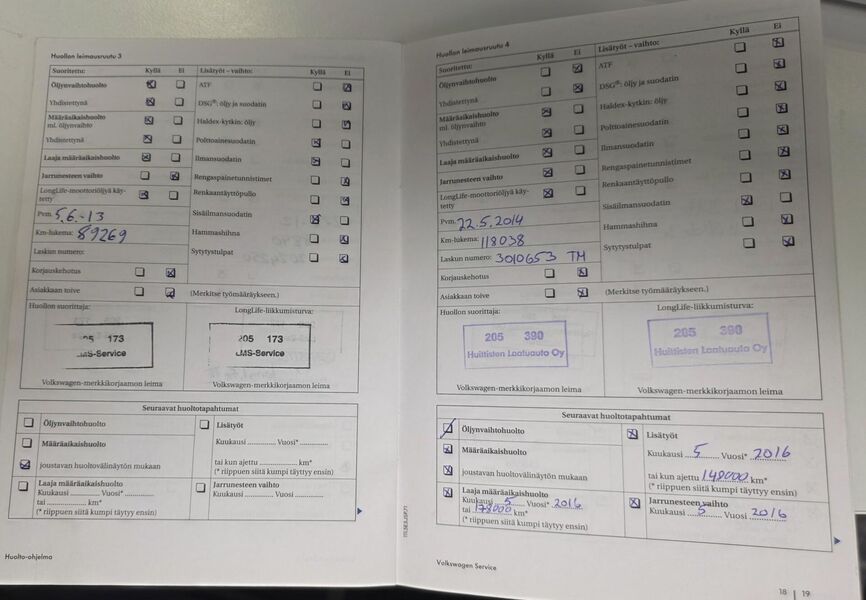 Huollon leimausruutu 3
Suoritettu: Kyllä Ei Lisätyöt – vaihto: Kyllä Ei
Öljynvaihtohuolto ATF
Yhdistettynä DSG®: öljy ja suodatin
Määräaikaishuolto Haldex-kytkin: öljy
ml. öljynvaihto
Yhdistettynä Polttoainesuodatin
Laaja määräaikaishuolto Ilmansuodatin
Jarrunesteen vaihto Rengaspainetunnistimet
LongLife-moottoriöljyä käy- Renkaantäyttöpullo
tetty
Pvm. 5.6.-13 Sisäilmansuodatin
Km-lukema: 89269 Hammashihna
Laskun numero: Sytytystulpat
Korjauskehotus
Asiakkaan toive (Merkitse työmääräykseen.)
Huollon suorittaja: LongLife-liikkumisturva:
205 173 205 173
JMS-Service JMS-Service
Volkswagen-merkkikorjaamon leima Volkswagen-merkkikorjaamon leima
Seuraavat huoltotapahtumat
Öljynvaihtohuolto Lisätyöt
Määräaikaishuolto Kuukausi ............ Vuosi* ............
joustavan huoltovälinäytön mukaan tai kun ajettu ............ km*
(* riippuen siitä kumpi täyttyy ensin)
Laaja määräaikaishuolto Jarrunesteen vaihto
Kuukausi ............ Vuosi* ............ Kuukausi ............ Vuosi ............
tai ............ km*
(* riippuen siitä kumpi täyttyy ensin)
Huolto-ohjelma
Huollon leimausruutu 4
Suoritettu: Kyllä Ei Lisätyöt – vaihto: Kyllä Ei
Öljynvaihtohuolto ATF
Yhdistettynä DSG®: öljy ja suodatin
Määräaikaishuolto Haldex-kytkin: öljy
ml. öljynvaihto
Yhdistettynä Polttoainesuodatin
Laaja määräaikaishuolto Ilmansuodatin
Jarrunesteen vaihto Rengaspainetunnistimet
LongLife-moottoriöljyä käy- Renkaantäyttöpullo
tetty
Pvm. 22.5.2014 Sisäilmansuodatin
Km-lukema: 118038 Hammashihna
Laskun numero: 3010653 TM Sytytystulpat
Korjauskehotus
Asiakkaan toive (Merkitse työmääräykseen.)
Huollon suorittaja: LongLife-liikkumisturva:
205 390 205 390
Huittisten Laatuauto Oy Huittisten Laatuauto Oy
Volkswagen-merkkikorjaamon leima Volkswagen-merkkikorjaamon leima
Seuraavat huoltotapahtumat
Öljynvaihtohuolto Lisätyöt
Määräaikaishuolto Kuukausi 5 Vuosi* 2016
joustavan huoltovälinäytön mukaan tai kun ajettu 148000 km*
(* riippuen siitä kumpi täyttyy ensin)
Laaja määräaikaishuolto Jarrunesteen vaihto
Kuukausi 5 Vuosi* 2016 Kuukausi 5 Vuosi 2016
tai 178000 km*
(* riippuen siitä kumpi täyttyy ensin)
Volkswagen Service
18 | 19